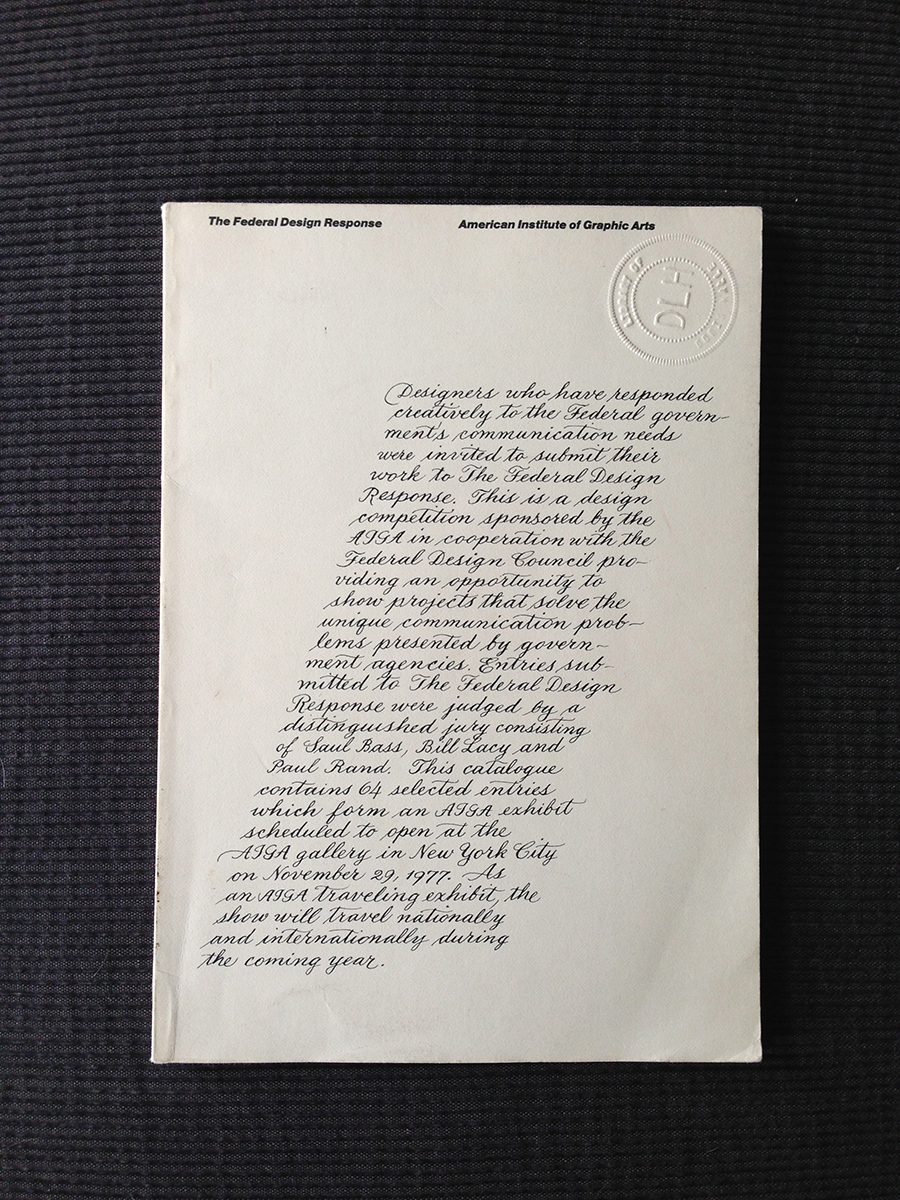 The Federal Design Response
American Institute of Graphic Arts
LIBRARY OF
DLH
Designers who have responded
creatively to the Federal govern-
ment's communication needs
were invited to submit their
work to The Federal Design
Response. This is a design
competition sponsored by the
AIGA in cooperation with the
Federal Design Council pro-
viding an opportunity to
show projects that solve the
unique communication prob-
lems presented by govern-
ment agencies. Entries sub-
mitted to The Federal Design
Response were judged by a
distinguished jury consisting
of Saul Bass, Bill Lacy and
Paul Rand. This catalogue
contains 64 selected entries
which form an AIGA exhibit
scheduled to open at the
AIGA gallery in New York City
on November 29, 1977. As
an AIGA traveling exhibit, the
show will travel nationally
and internationally during
the coming year.